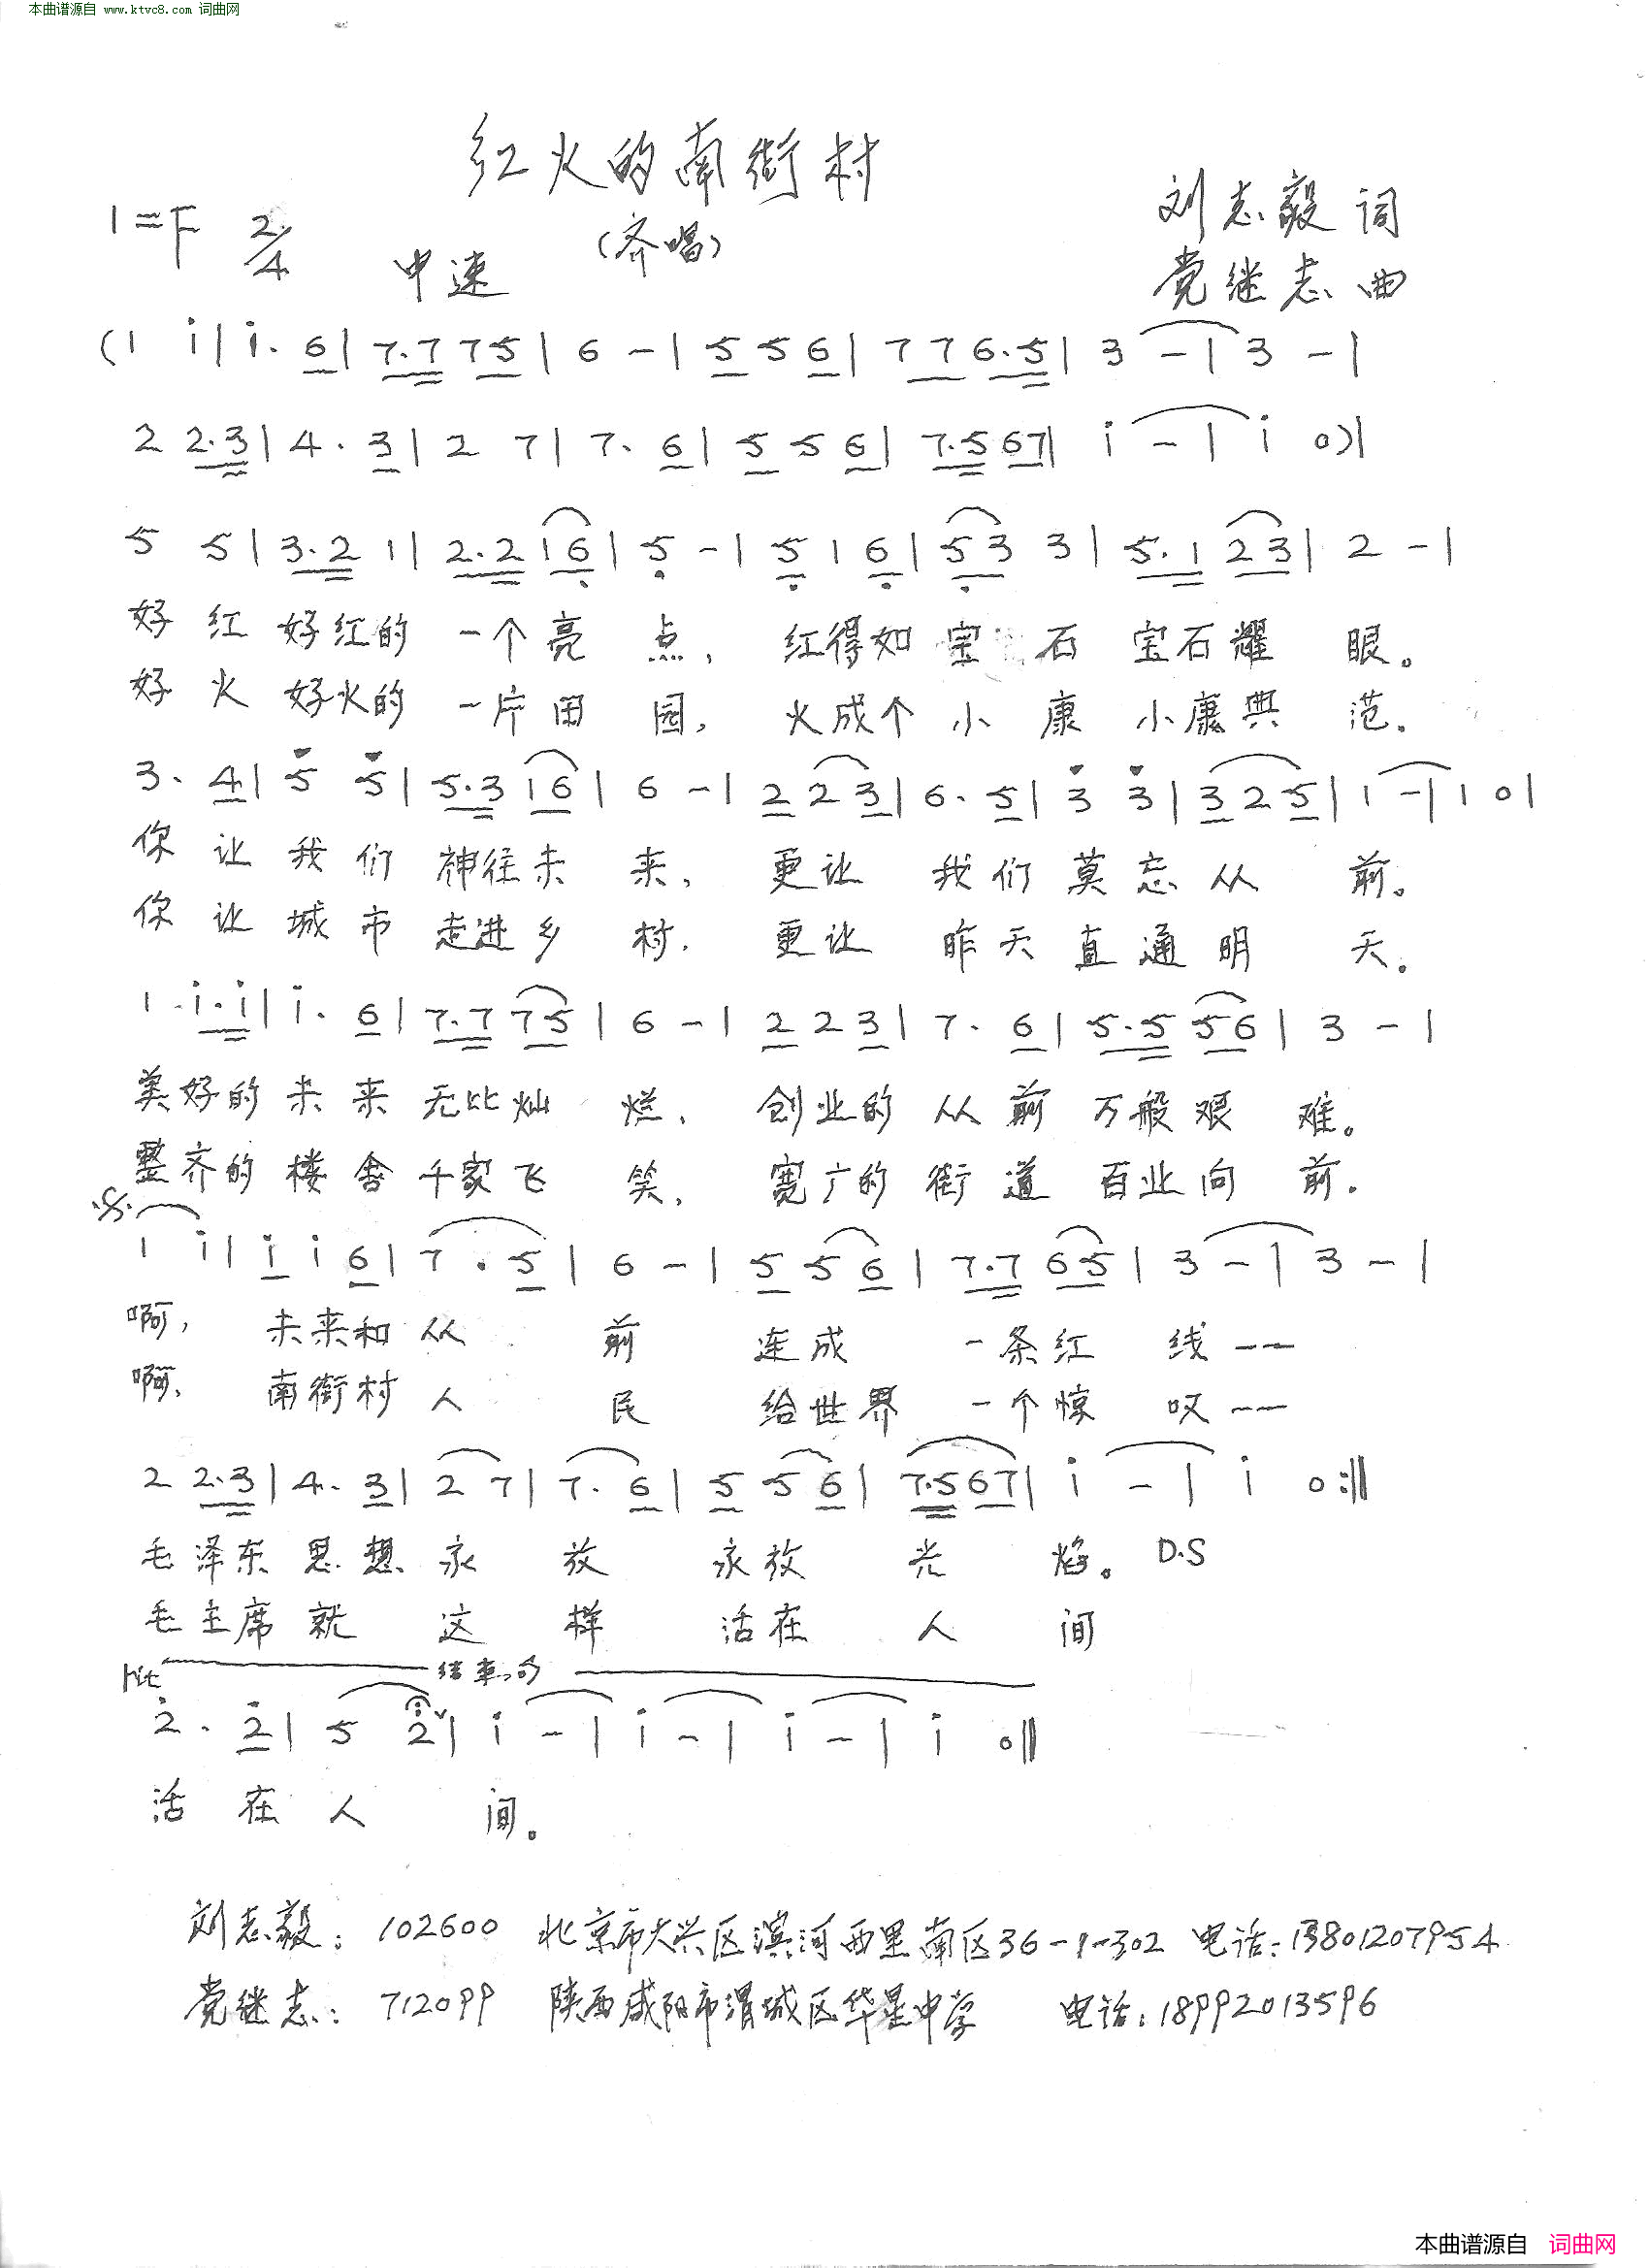 本曲谱源自 www.ktvc8.com 词曲网
红火的南街村
1=F 2/4 中速 (齐唱) 刘志毅 词
党继志 曲
(1 i| i. 6| 7.7 75| 6 -| 5 5 6| 7 7 6.5| 3 -| 3 -|
2 2.3| 4. 3| 2 7| 7. 6| 5 5 6| 7.5 67| i -| i 0)|
5 5| 3.2 1| 2.2 16| 5 -| 5 1 6| 53 3| 5.1 23| 2 -|
好 红 好红的 一个亮 点, 红得如 宝 石 宝石耀 眼。
好 火 好火的 一片田 园, 火成个 小 康 小康典 范.
3. 4| 5 5| 5.3 16| 6 -| 2 2 3| 6. 5| 3 3| 3 2 5| 1 -| 1 0|
你 让 我 们 神往未 来, 更让 我们莫忘从 前。
你 让 城 市 走进乡 村, 更让 昨天直通明 天。
1 i.i| i. 6| 7.7 75| 6 -| 2 2 3| 7. 6| 5.5 56| 3 -|
美好的 未 来 无比灿 烂, 创业的 从 前 万般艰 难。
整齐的 楼 舍 千家飞 笑, 宽广的 街 道 百业向 前.
1 i| i i 6| 7 . 5| 6 -| 5 5 6| 7.7 65| 3 -| 3 -|
啊, 未来和从 前 连成 一条红 线——
啊, 南街村人 民 给世界 一个惊 叹——
2 2.3| 4. 3| 2 7| 7. 6| 5 5 6| 7.5 67| i -| i 0:||
毛泽东思想 永 放 永放 光 焰。 D.S
毛主席就 这 样 活在 人 间
rit 结束句
2. 2| 5 2| i -| i -| i -| i 0||
活 在 人 间。
刘志毅: 102600 北京市大兴区滨河西里南区36-1-302 电话:13801207954
党继志: 712099 陕西咸阳市渭城区华星中学 电话:18992013596
本曲谱源自 词曲网